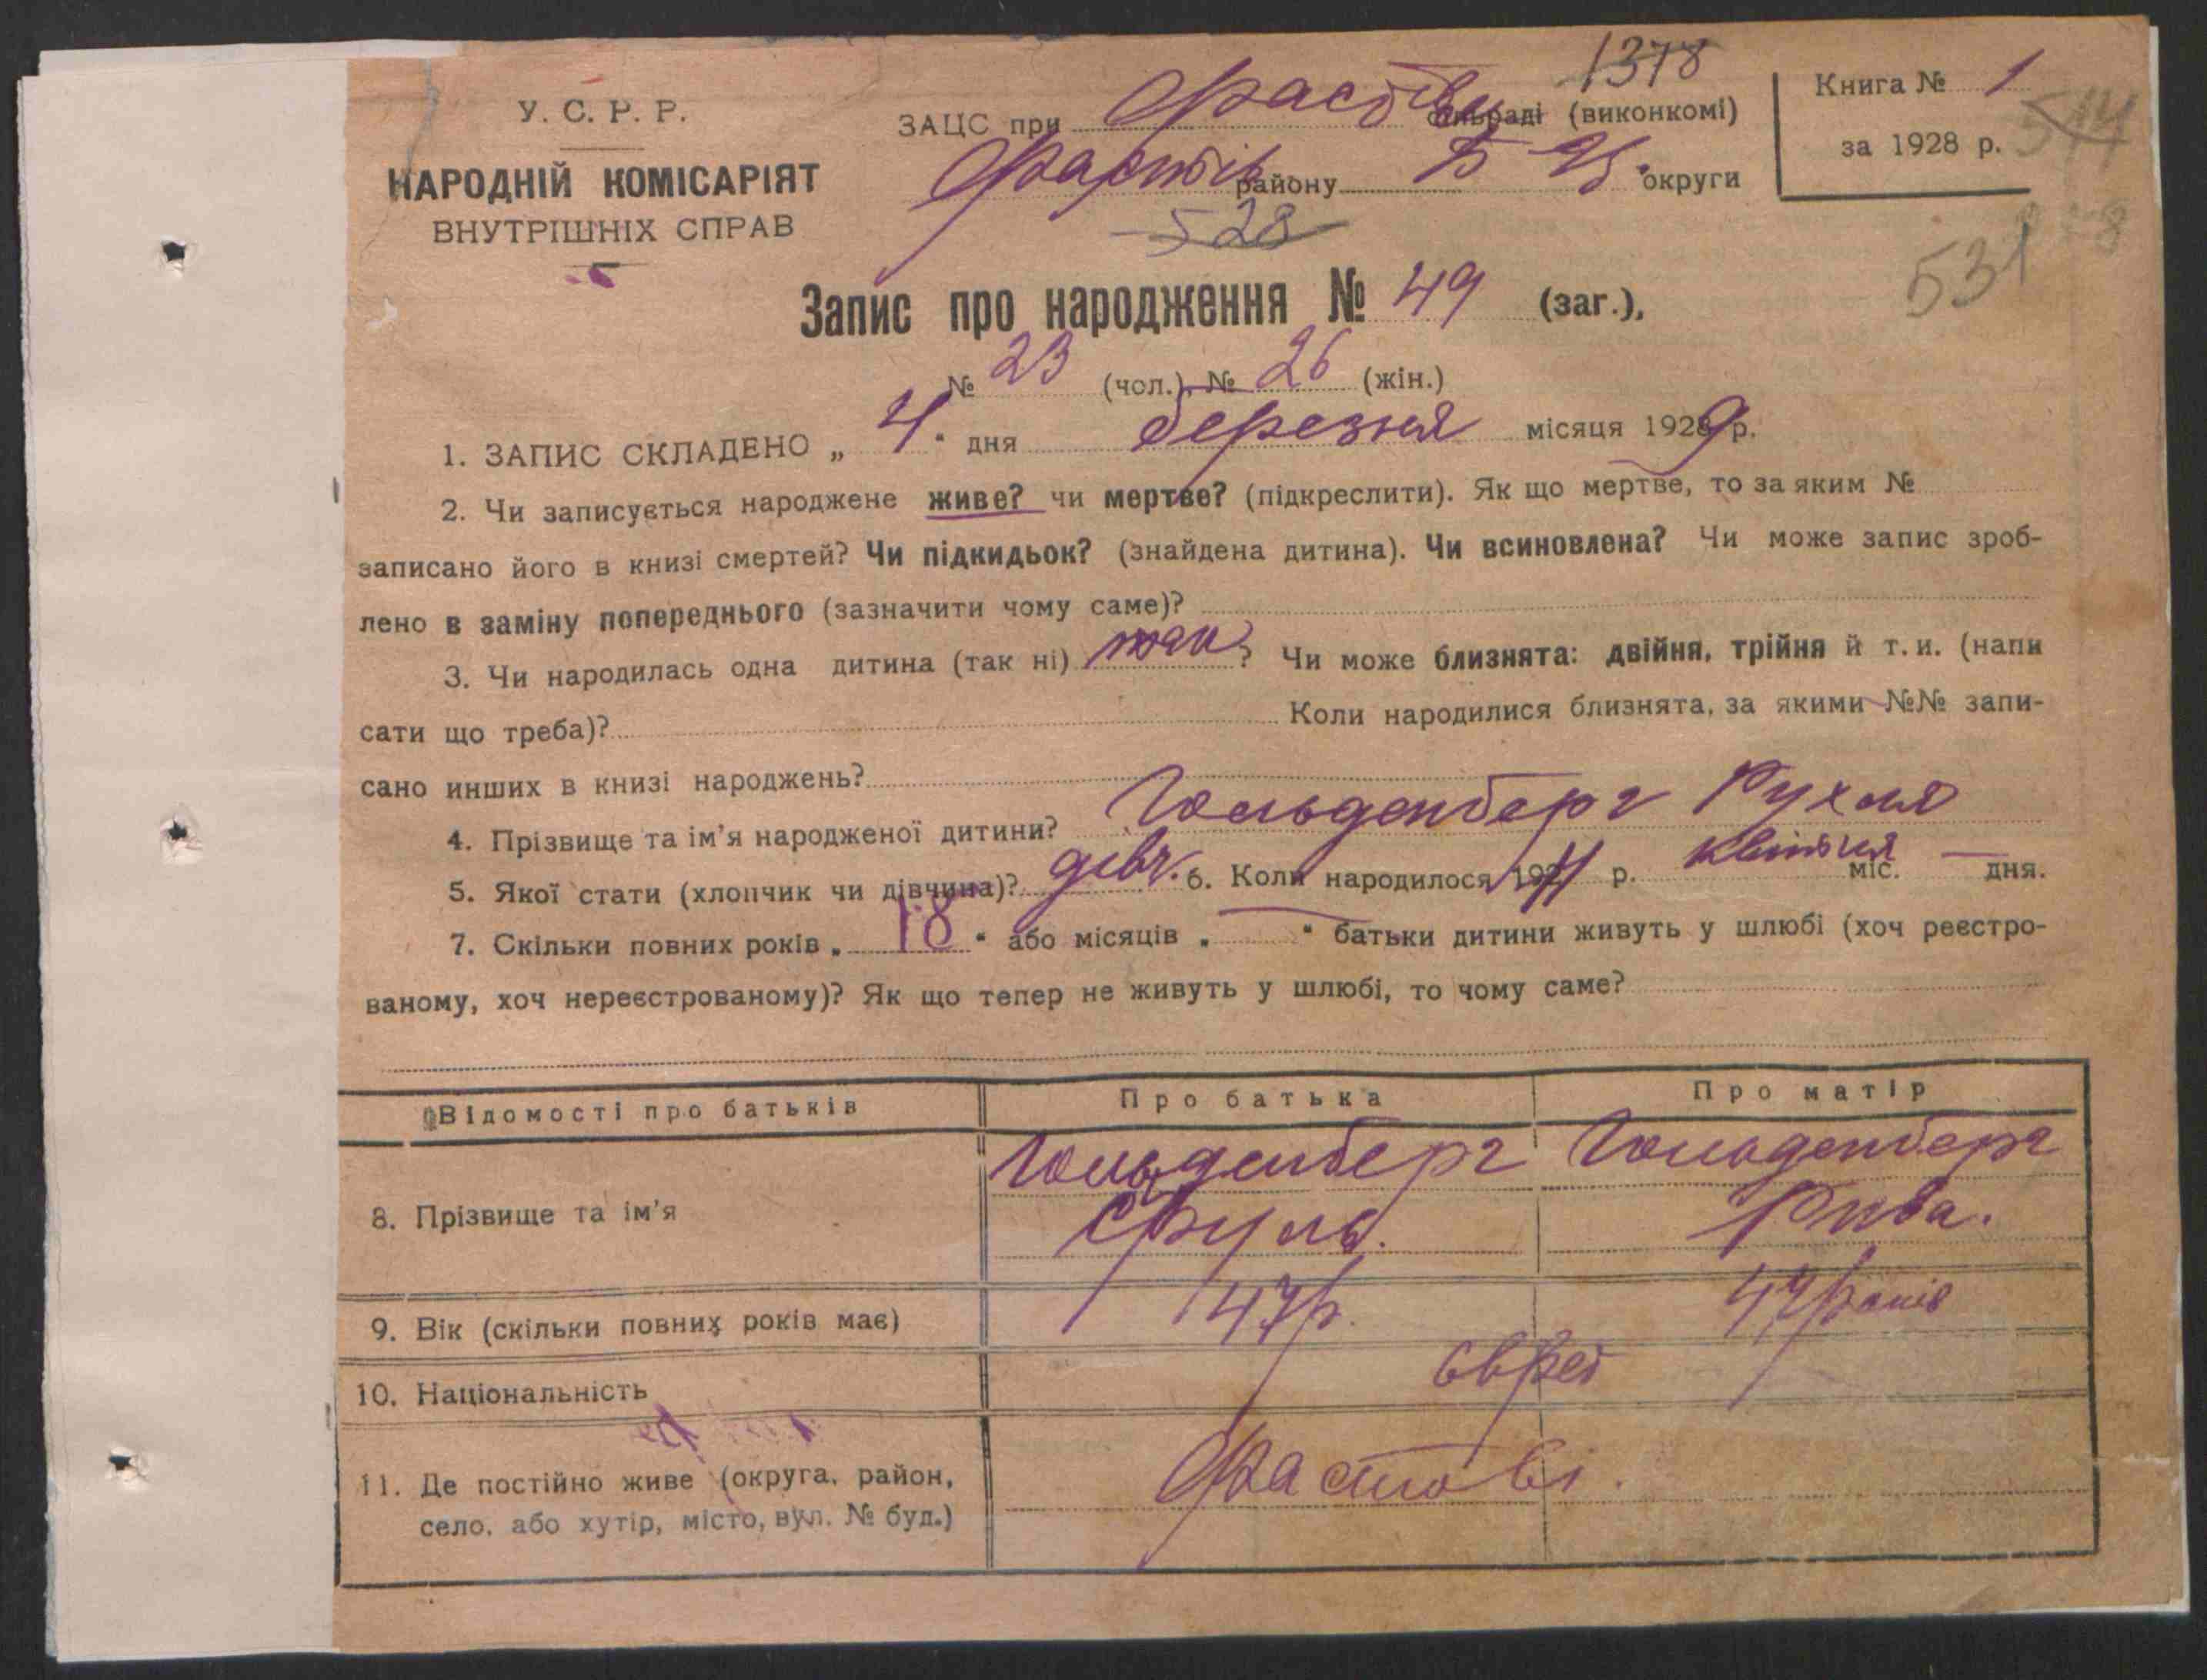 1378
У. С. Р. Р.
ЗАЦС при Фастів сільраді (виконкомі)
Книга № 1
НАРОДНІЙ КОМІСАРІЯТ
Фастів району Б Ц округи
за 1928 р.
544
ВНУТРІШНІХ СПРАВ
528
531
Запис про народження № 49 (заг.),
№ 23 (чол.), № 26 (жін.)
1. ЗАПИС СКЛАДЕНО „ 4 “ дня березня місяця 1929 р.
2. Чи записується народжене живе? чи мертве? (підкреслити). Як що мертве, то за яким №
записано його в книзі смертей? Чи підкидьок? (знайдена дитина). Чи всиновлена? Чи може запис зроб-
лено в заміну попереднього (зазначити чому саме)?
3. Чи народилась одна дитина (так ні) так ? Чи може близнята: двійня, трійня й т. и. (напи
сати що треба)? Коли народилися близнята, за якими №№ запи-
сано инших в книзі народжень?
4. Прізвище та ім’я народженої дитини? Гольденберг Рухля
5. Якої стати (хлопчик чи дівчина)? дівч. 6. Коли народилося 1911 р. квітня міс. — дня.
7. Скільки повних років „ 18 “ або місяців „ — “ батьки дитини живуть у шлюбі (хоч реєстро-
ваному, хоч нереєстрованому)? Як що тепер не живуть у шлюбі, то чому саме?
Відомості про батьків Про батька Про матір
8. Прізвище та ім’я Гольденберг Сруль. Гольденберг Рива.
9. Вік (скільки повних років має) 47 р. 47 років
10. Національність Єврей
11. Де постійно живе (округа, район,
село, або хутір, місто, вул. № буд.) Фастові.